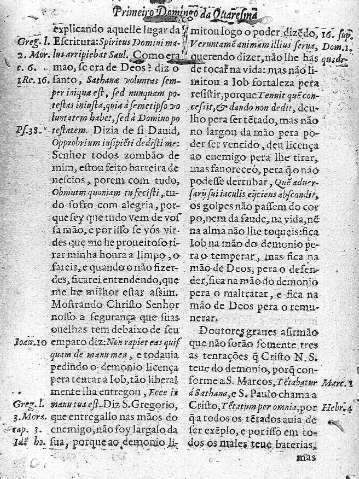 Primeiro Domingo da Quaresma
explicando aquelle lugar da
Greg. l.
Escritura: Spiritus Domini ma-
2. Mor.
lus arripiebat Saul. Como era
c. 6.
mao, se era de Deos? diz o
1. Re. 16.
santo, Sathanæ voluntas sem-
per iniqua est, sed nunquam po-
testas iniusta, quia à semetipso vo
luntatem habet, sed à Domino po
testatem. Dizia de si Dauid,
Psf. 38.
Opprobrium insipiēti dedisti me:
Senhor todos zombão de
mim, estou feito barreira de
nescios, porem com tudo,
Obmutui quoniam tu fecisti, tu-
do sofro com alegria, por-
que sey que tudo vem de vos
sa mão, e por isso se vós vir-
des que me he proueitoso ti-
rar minha honra a limpo, o
fareis, e quando o não fizer-
des, ficarei entendendo, que
me he milhor estar assim.
Mostrando Christo Senhor
nosso a segurança que suas
ouelhas tem debaixo de seu
Ioan. 10
emparo diz: Non rapiet eas quis
quam de manu mea, e todauia
pedindo o demonio licença
pera tentar a Iob, tão liberal
mente lha entregou, Ecce in
Greg. l.
manu tua est. Diz S. Gregorio,
3. Mor.
que entregallo nas mãos do
cap. 3.
enemigo, não foy largalo da
Idē ho.
sua, porque ao demonio li-
mitou logo o poder dizēdo,
16. sup.
Veruntamē animam illius serua,
Dom. 1.
querendo dizer, não lhe has
quadr.
de tocar na vida: mas não li-
mitou a Iob fortaleza pera
resistir, porque Tenuit que con-
cessit, & dando non dedit, deu-
lho pera ser tētado, mas não
no largou da mão pera po-
der ser vencido, deu licença
ao enemigo pera lhe tirar,
mas fanoreceo, pera q̃ não
podesse derrubar, Quē aduer-
sarij sui iaculis eijciens abscondit,
os golpes não passem do cor
po, nem da saude, na vida, nē
na alma não lhe toqueis: fica
Iob na mão do demonio pe-
ra o temperar, mas fica na
mão de Deos, pera o defen-
der, fica na mão do demonio
pera o maltratar, e fica na
mão de Deos pera o remu-
nerar.
Doutores graues afirmão
que não forão somente tres
as tentações q̃ Cristo N. S.
teue do demonio, porq̃ con-
forme a S. Marcos, Tētabatur
Marc. 1
à Sathana, e S. Paulo chama a
Cristo, Tētatum per omnia, por
Hebr. 4
q̃ a todos os tētados auia de
ser exēplo, e por isso em to-
dos os males teue baterias,
mas